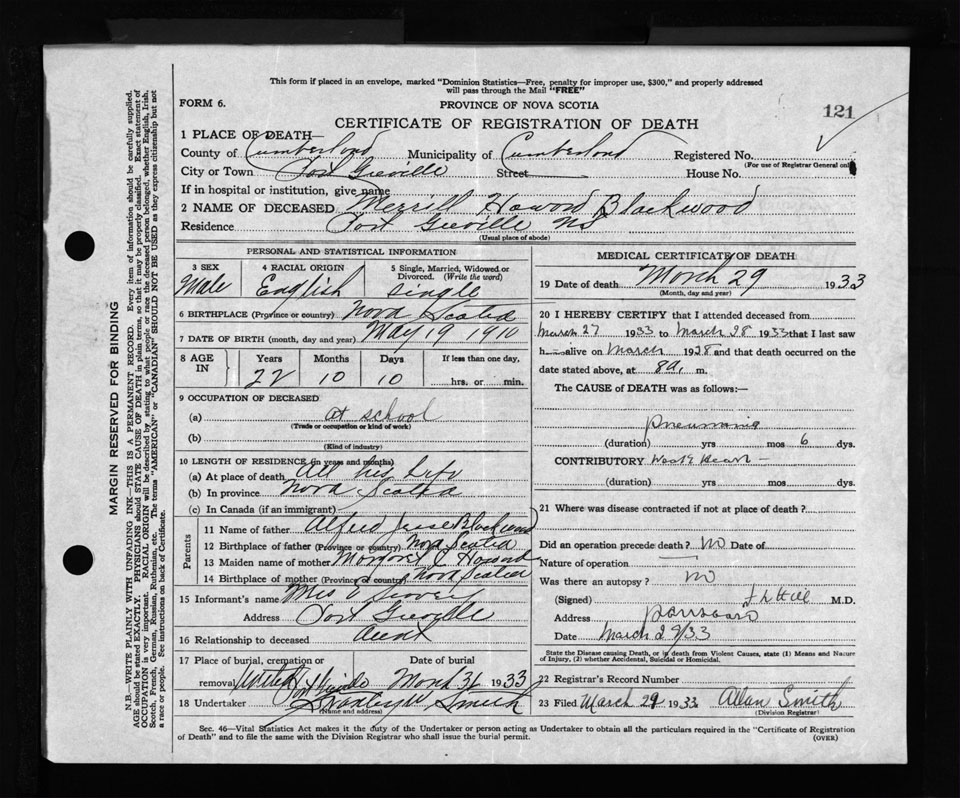 This form if placed in an envelope, marked "Dominion Statistics—Free, penalty for improper use, $300," and properly addressed
will pass through the Mail "FREE"
FORM 6.
PROVINCE OF NOVA SCOTIA
121
CERTIFICATE OF REGISTRATION OF DEATH
1 PLACE OF DEATH—
County of Cumberland Municipality of Cumberland Registered No.
(For use of Registrar General only)
City or Town Port Greville Street House No.
If in hospital or institution, give name
2 NAME OF DECEASED Merrill Howard Blackwood
Residence Port Greville NS
(Usual place of abode)
PERSONAL AND STATISTICAL INFORMATION
3 SEX Male
4 RACIAL ORIGIN English
5 Single, Married, Widowed or Divorced. (Write the word) single
6 BIRTHPLACE (Province or country) Nova Scotia
7 DATE OF BIRTH (month, day and year) May 19 1910
8 AGE IN Years Months Days If less than one day,
22 10 10 hrs. or min.
9 OCCUPATION OF DECEASED
(a) at school
(Trade or occupation or kind of work)
(b)
(Kind of industry)
10 LENGTH OF RESIDENCE (in years and months)
(a) At place of death All his life
(b) In province Nova Scotia
(c) In Canada (if an immigrant)
Parents
11 Name of father Alfred Jesse Blackwood
12 Birthplace of father (Province or country) Nova Scotia
13 Maiden name of mother
14 Birthplace of mother (Province or country) Nova Scotia
15 Informant's name Mrs
Address Port Greville
16 Relationship to deceased Aunt
17 Place of burial, cremation or removal Date of burial
March 31 1933
18 Undertaker Smith
(Name and address)
MEDICAL CERTIFICATE OF DEATH
19 Date of death March 29 1933
(Month, day and year)
20 I HEREBY CERTIFY that I attended deceased from
March 27 1933 to March 28 1933 that I last saw
h alive on March 1928 and that death occurred on the
date stated above, at 8a. m.
The CAUSE of DEATH was as follows:—
pneumonia
(duration) yrs mos 6 dys.
CONTRIBUTORY Weak Heart
(duration) yrs mos dys.
21 Where was disease contracted if not at place of death?
Did an operation precede death? NO Date of
Nature of operation
Was there an autopsy? NO
(Signed) M.D.
Address Parrsboro
Date March 29/33
State the Disease causing Death, or in death from Violent Causes, state (1) Means and Nature
of Injury, (2) whether Accidental, Suicidal or Homicidal.
22 Registrar's Record Number
23 Filed March 29 1933 Allan Smith
(Division Registrar)
Sec. 46—Vital Statistics Act makes it the duty of the Undertaker or person acting as Undertaker to obtain all the particulars required in the "Certificate of Registration
of Death" and to file the same with the Division Registrar who shall issue the burial permit.
(OVER)
MARGIN RESERVED FOR BINDING
N.B—WRITE PLAINLY WITH UNFADING INK—THIS IS A PERMANENT RECORD. Every item of information should be carefully supplied.
AGE should be stated EXACTLY. PHYSICIANS should STATE CAUSE OF DEATH in plain terms, so that it may be properly classified. Exact statement of
OCCUPATION is very important. RACIAL ORIGIN will be described by stating to what people or race the deceased person belonged, whether English, Irish,
Scotch, French, German, Russian, Ruthenian, etc. The terms "AMERICAN" or "CANADIAN" SHOULD NOT BE USED as they express citizenship but not
a race or people. See instructions on back of Certificate.